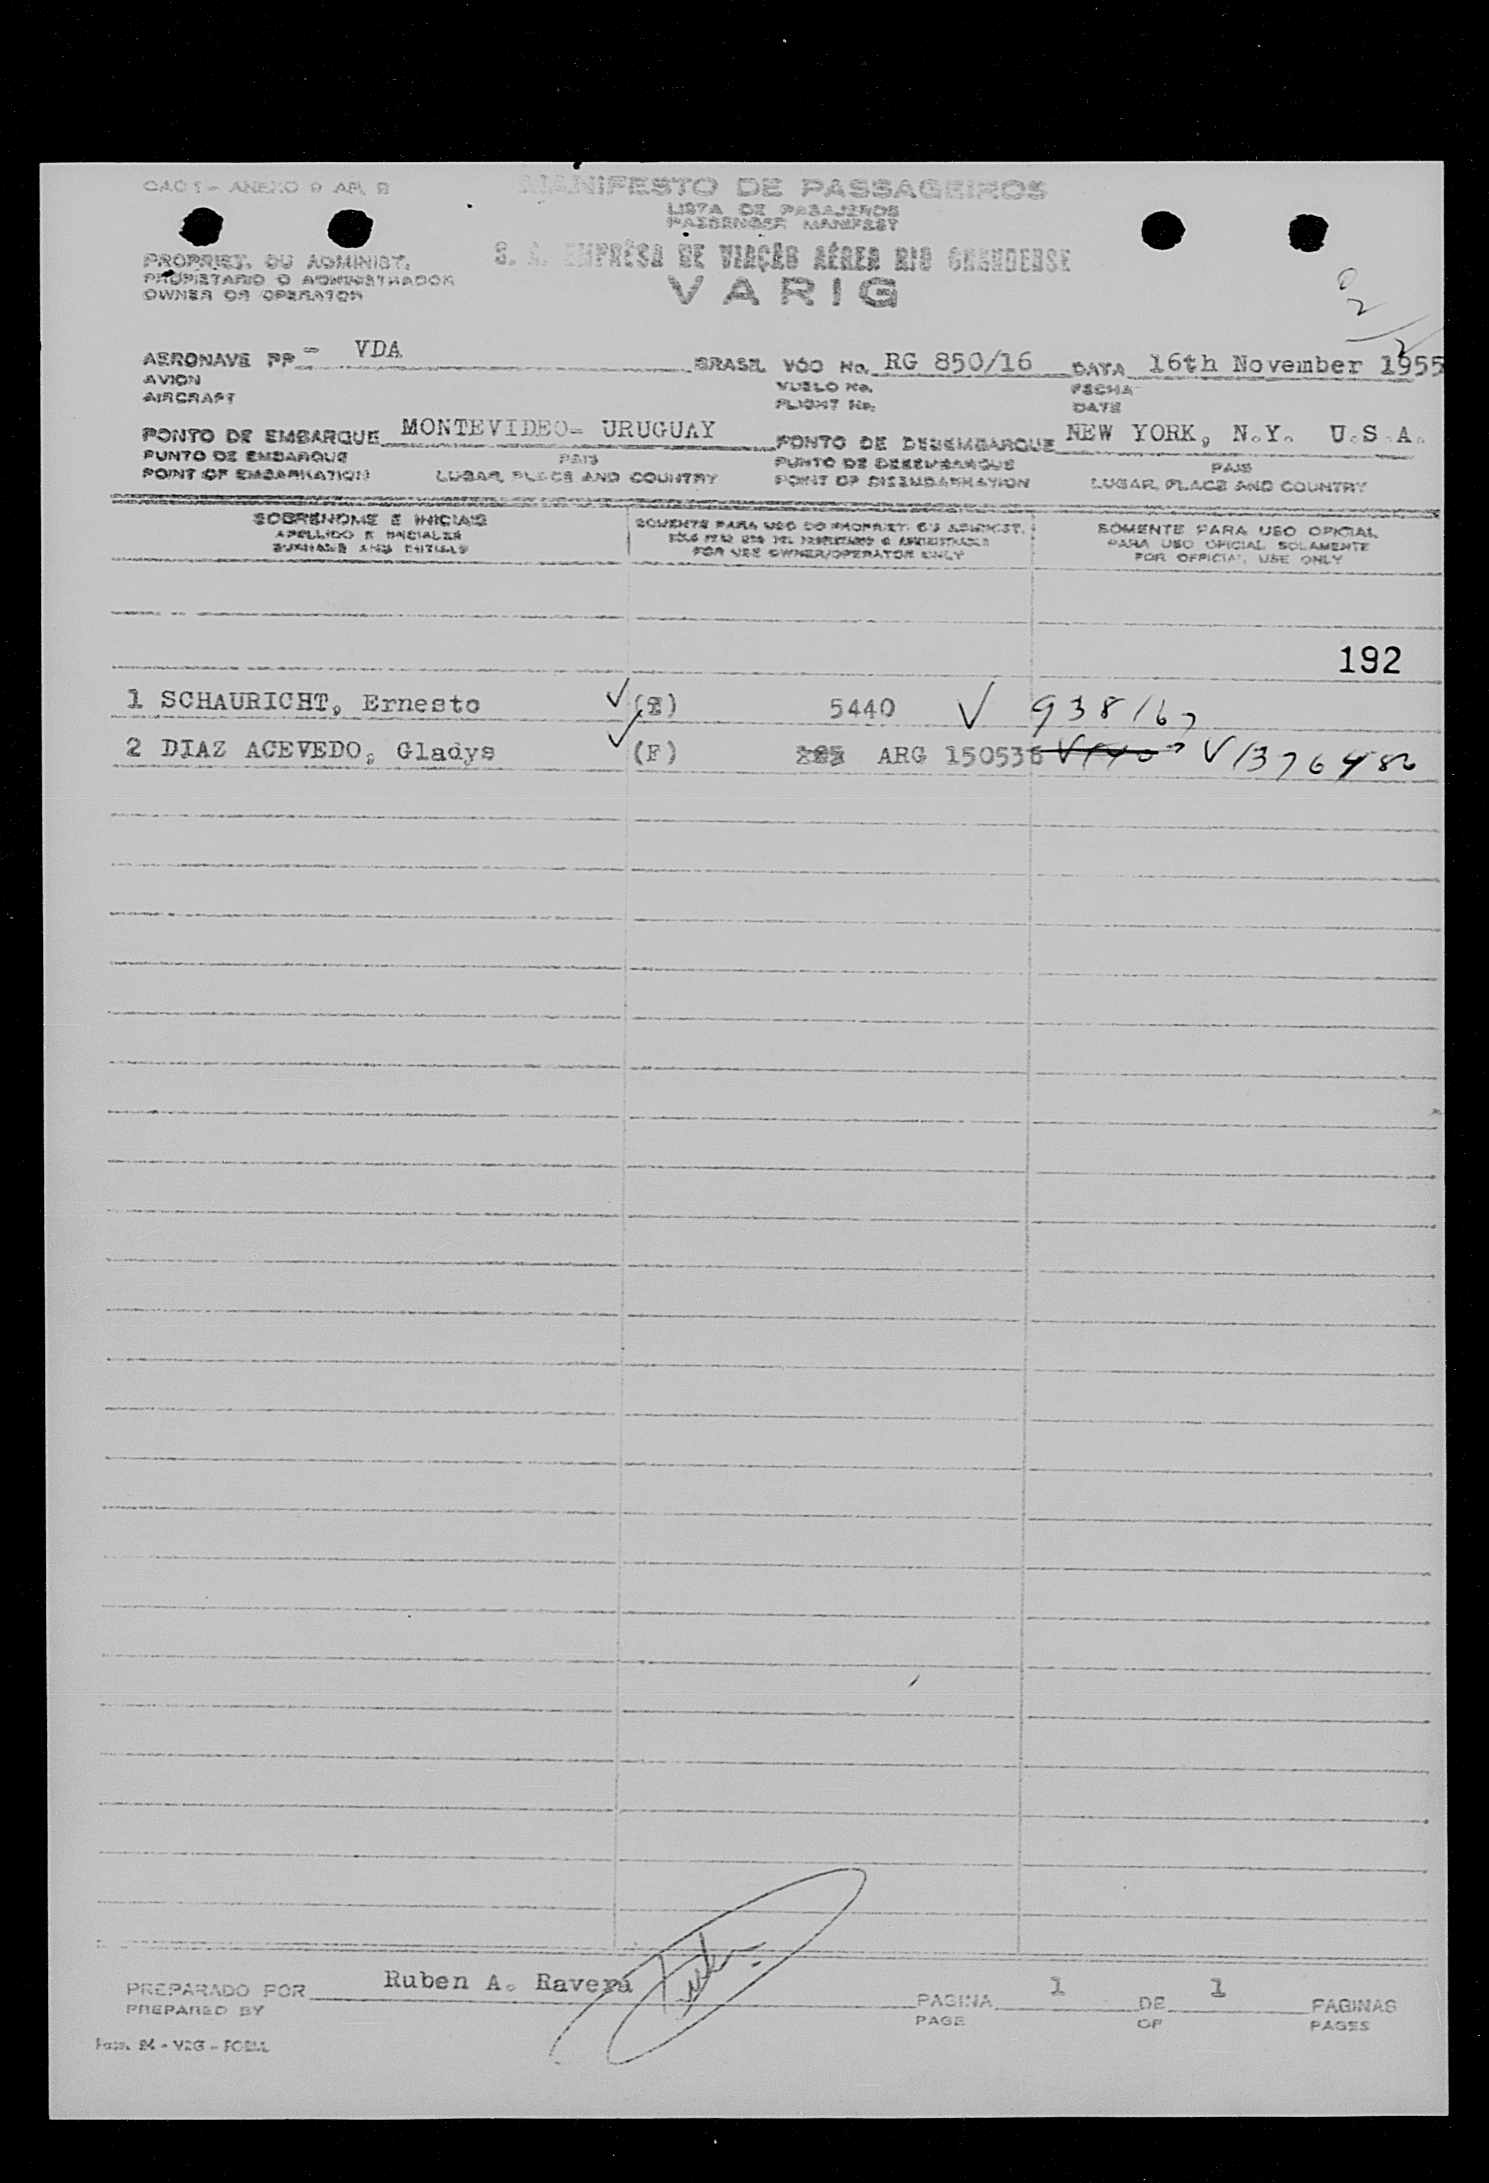 OACI - ANEXO 9 AP. B
MANIFESTO DE PASSAGEIROS
LISTA DE PASAJEROS
PASSENGER MANIFEST
S. A. EMPRÊSA DE VIAÇÃO AÉREA RIO GRANDENSE
VARIG
PROPRIET. OU ADMINIST.
PROPIETARIO O ADMINISTRADOR
OWNER OR OPERATOR
2
2
AERONAVE PP - VDA BRASIL VÔO No. RG 850/16 DATA 16th November 1955
AVION VUELO No. FECHA
AIRCRAFT FLIGHT No. DATE
PONTO DE EMBARQUE MONTEVIDEO- URUGUAY PONTO DE DESEMBARQUE NEW YORK, N.Y. U.S.A.
PUNTO DE EMBARQUE PAIS PUNTO DE DESEMBARQUE PAIS
POINT OF EMBARKATION LUGAR, PLACE AND COUNTRY POINT OF DISEMBARKATION LUGAR, PLACE AND COUNTRY
SOBRENOME E INICIAIS SOMENTE PARA USO DO PROPRIET. OU ADMINIST. SOMENTE PARA USO OFICIAL
APELLIDO E INICIALES SOLO PARA USO DEL PROPIETARIO O ADMINISTRADOR PARA USO OFICIAL SOLAMENTE
SURNAME AND INITIALS FOR USE OWNER/OPERATOR ONLY FOR OFFICIAL USE ONLY
192
1 SCHAURICHT, Ernesto ✓ 5440 ✓ 93816
2 DIAZ ACEVEDO, Gladys ✓ (F) ARG 150536 V1376482
PREPARADO POR Ruben A. Ravera PAGINA 1 DE 1 PAGINAS
PREPARED BY PAGE OF PAGES